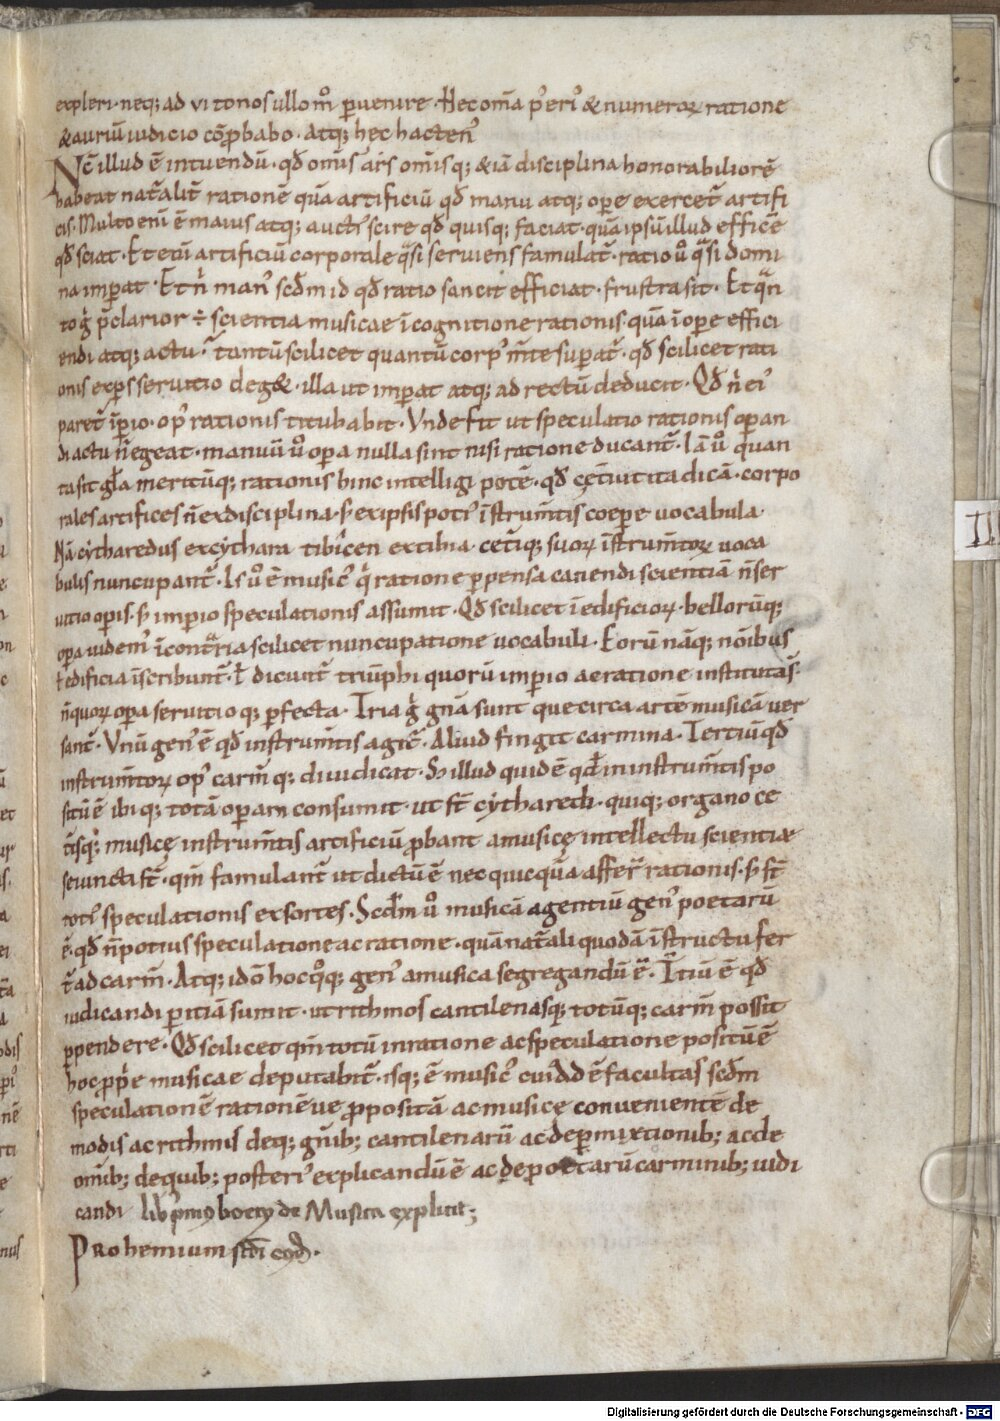 52
expleri· neq; ad vi tonos ullom̊ p̱uenire· Hec om̄a p̱eri᾽ & numeroꝝ ratione
& auriū iudicio cōꝓbabo· Atq; hec hacten᾽
Nc̄ illud ē intuendū· qđ om̄is ars om̄isq; & iā disciplina honorabiliorē
habeat nat̄alit̄ rationē quā artificiū qđ manu atq; oꝑe exercet᷑ artifi
cis· Multo eni᷑ ē maius atq; auctꝰ scire qđ quisq; faciat· quā ipsū illud efficē
qđ sciat· Et etiā artificiū corporale q̈si seruiens famulat᷑· ratio u̾o q̈si domi
na imꝑat· Et n̄ manꝰ scđm id qđ ratio sancit efficiat· frustra sit· Et q̈n
to g̾ p̄clarior ÷ scientia musicae ī cognitione rationis· quā ī oꝑe effici
endi atq; actu· tantū scilicet quantū corpꝰ m̄te suꝑat᷑· qđ scilicet rati
onis exꝑs seruitio deg&· illa ut imꝑat atq; ad rectū deducit· Qđ n̄ eiꝰ
paret᷑ īꝑio· opꝰ rationis titubabit· Vnde fit ut speculatio rationis oꝑan
di actu n̄ egeat· manuū u̾o oꝑa nulla sint nisi ratione ducant᷑· Iā u̾o quan
ta sit gła meritūq; rationis hinc intelligi potē· qđ cęt̄i ut ita dicā· corpo
rales artifices n̄ ex disciplina· s᷑ ex ipsis potiꝰ īstrum̄tis coeꝑe uocabula·
Nā cytharedus ex cythara tibicen ex tibia cet̄iq; suoꝝ īstrum̄toꝝ uoca
bulis nuncupant᷑· Is u̾o ē musicꝰ q̇ ratione ꝑpensa canendi scientiā n̄ ser
uitio opis· s᷑ imꝑio speculationis assumit· Qđ scilicet ī edificioꝝ· bellorūq;
oꝑa uidemꝰ ī contraria scilicet nuncupatione uocabuli· Eorū nāq; nōibus
ł edificia īscribunt᷑· ł dicunt᷑ triūphi quorū imꝑio ac ratione institutas·
n̄ quoꝝ oꝑa seruitio q; ꝑfecta· Tria g̾ gn̄a sunt que circa artē musicā uer
sant᷑· Vnū genꝰ ē qđ instrum̄tis agit᷑· Aliud fingit carmina· Tertiū qđ
instrum̄toꝝ opꝰ carm̄ q; diiudicat· S᷑ illud quid ē qđ in instrum̄tis po
sitū ē ibi q; totā oꝑam consumit· ut st̄ cytharedi· quiq; organo ce
t̄isq; musicę instrum̄tis artificiū ꝓbant a musicę intellectu scientiae
seiuncti st̄· qm̄ famulant᷑ ut dictū ē nec quicquā affer̄ rationis· s᷑ st̄
totiꝰ speculationis exsortes· Scđm u̾o musicā agentiū genꝰ poetarū
ē· qđ n̄ potius speculatione ac ratione· quā nat̄ali quodā īstructu fer
t᷑ ad carm̄· Atq; idō hoc q̊q; genꝰ a musica segregandū ē· T̄tiū ē qđ
iudicandi ꝑitiā sumit· ut rithmos cantilenasq; totūq; carm̄ possit
ꝑpendere· Qđ scilicet qm̄ totū in ratione ac speculatione positū ē
hoc ꝓp̄e musicae deputabit᷑· isq; ē musicꝰ cui add ē facultas scđm
speculationē rationēue ꝓpositā ac musicę conuenientē de
modis ac rithmis deq; gn̄ib; cantilenarū ac de ꝑmixtionib; ac de
om̄ib; de quib; posteriꝰ explicandū ē ac de poetarū carminib; iudi
candi lib᷑ primꝰ boetij de Musica explicit;
Prohemium scđi eiusdē·
II
Digitalisierung gefördert durch die Deutsche Forschungsgemeinschaft - DFG